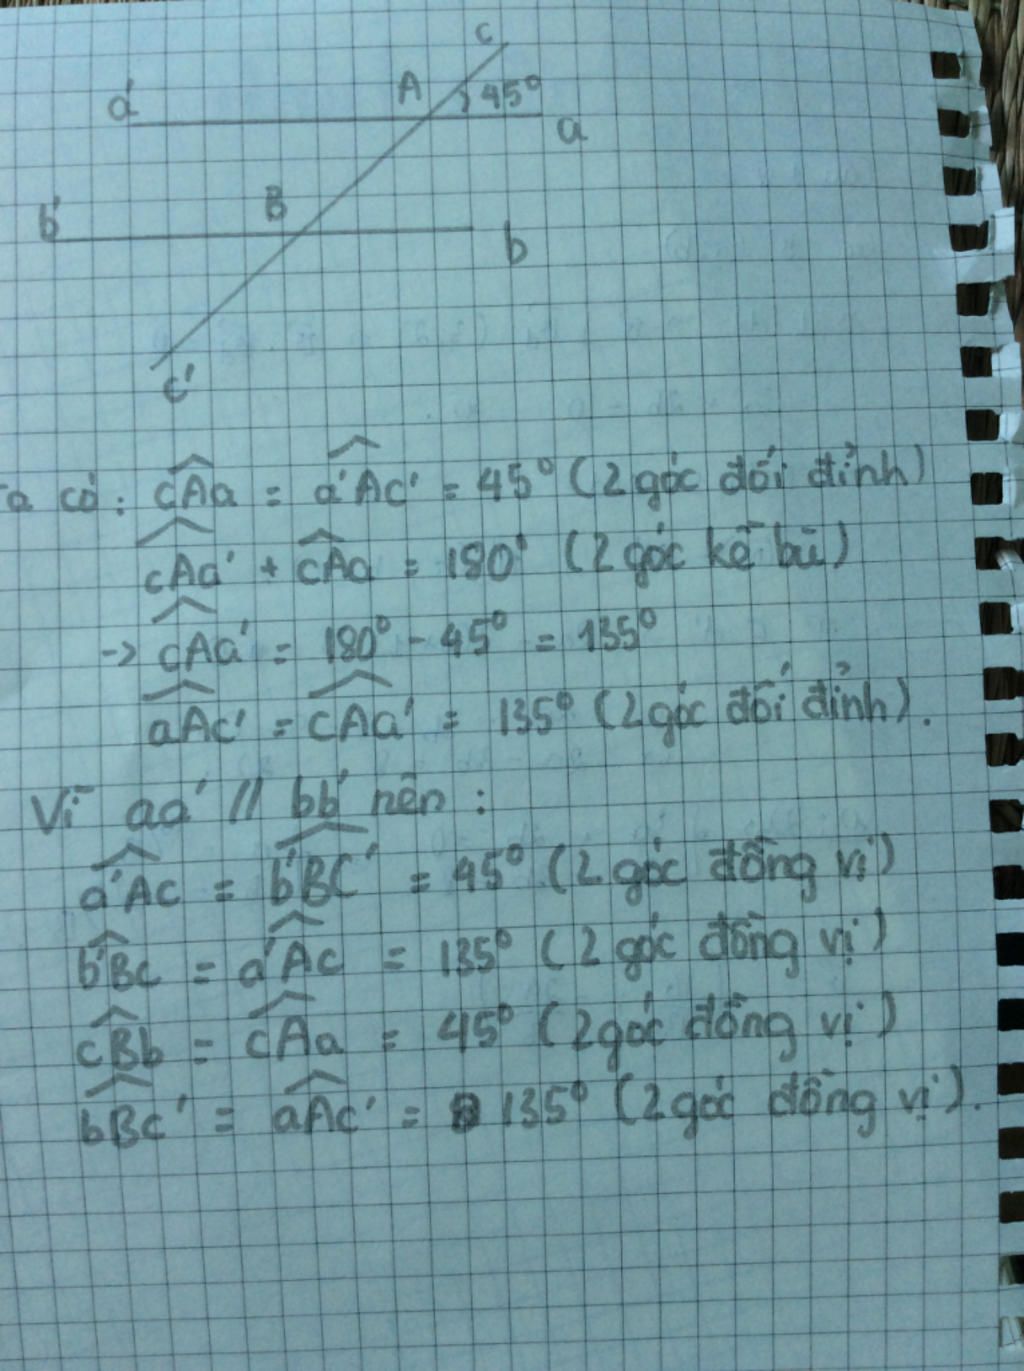 c
A 45°
a'
a
B
b'
b
c'
Ta có: cAa = a'Ac' = 45° (2 góc đối đỉnh)
cAa' + cAa = 180° (2 góc kề bù)
-> cAa' = 180° - 45° = 135°
aAc' = cAa' = 135° (2 góc đối đỉnh).
Vì aa' // bb' nên:
a'Ac = b'BC' = 45° (2 góc đồng vị)
b'Bc = a'Ac = 135° (2 góc đồng vị)
cBb = cAa = 45° (2 góc đồng vị)
bBc' = aAc' = 135° (2 góc đồng vị).